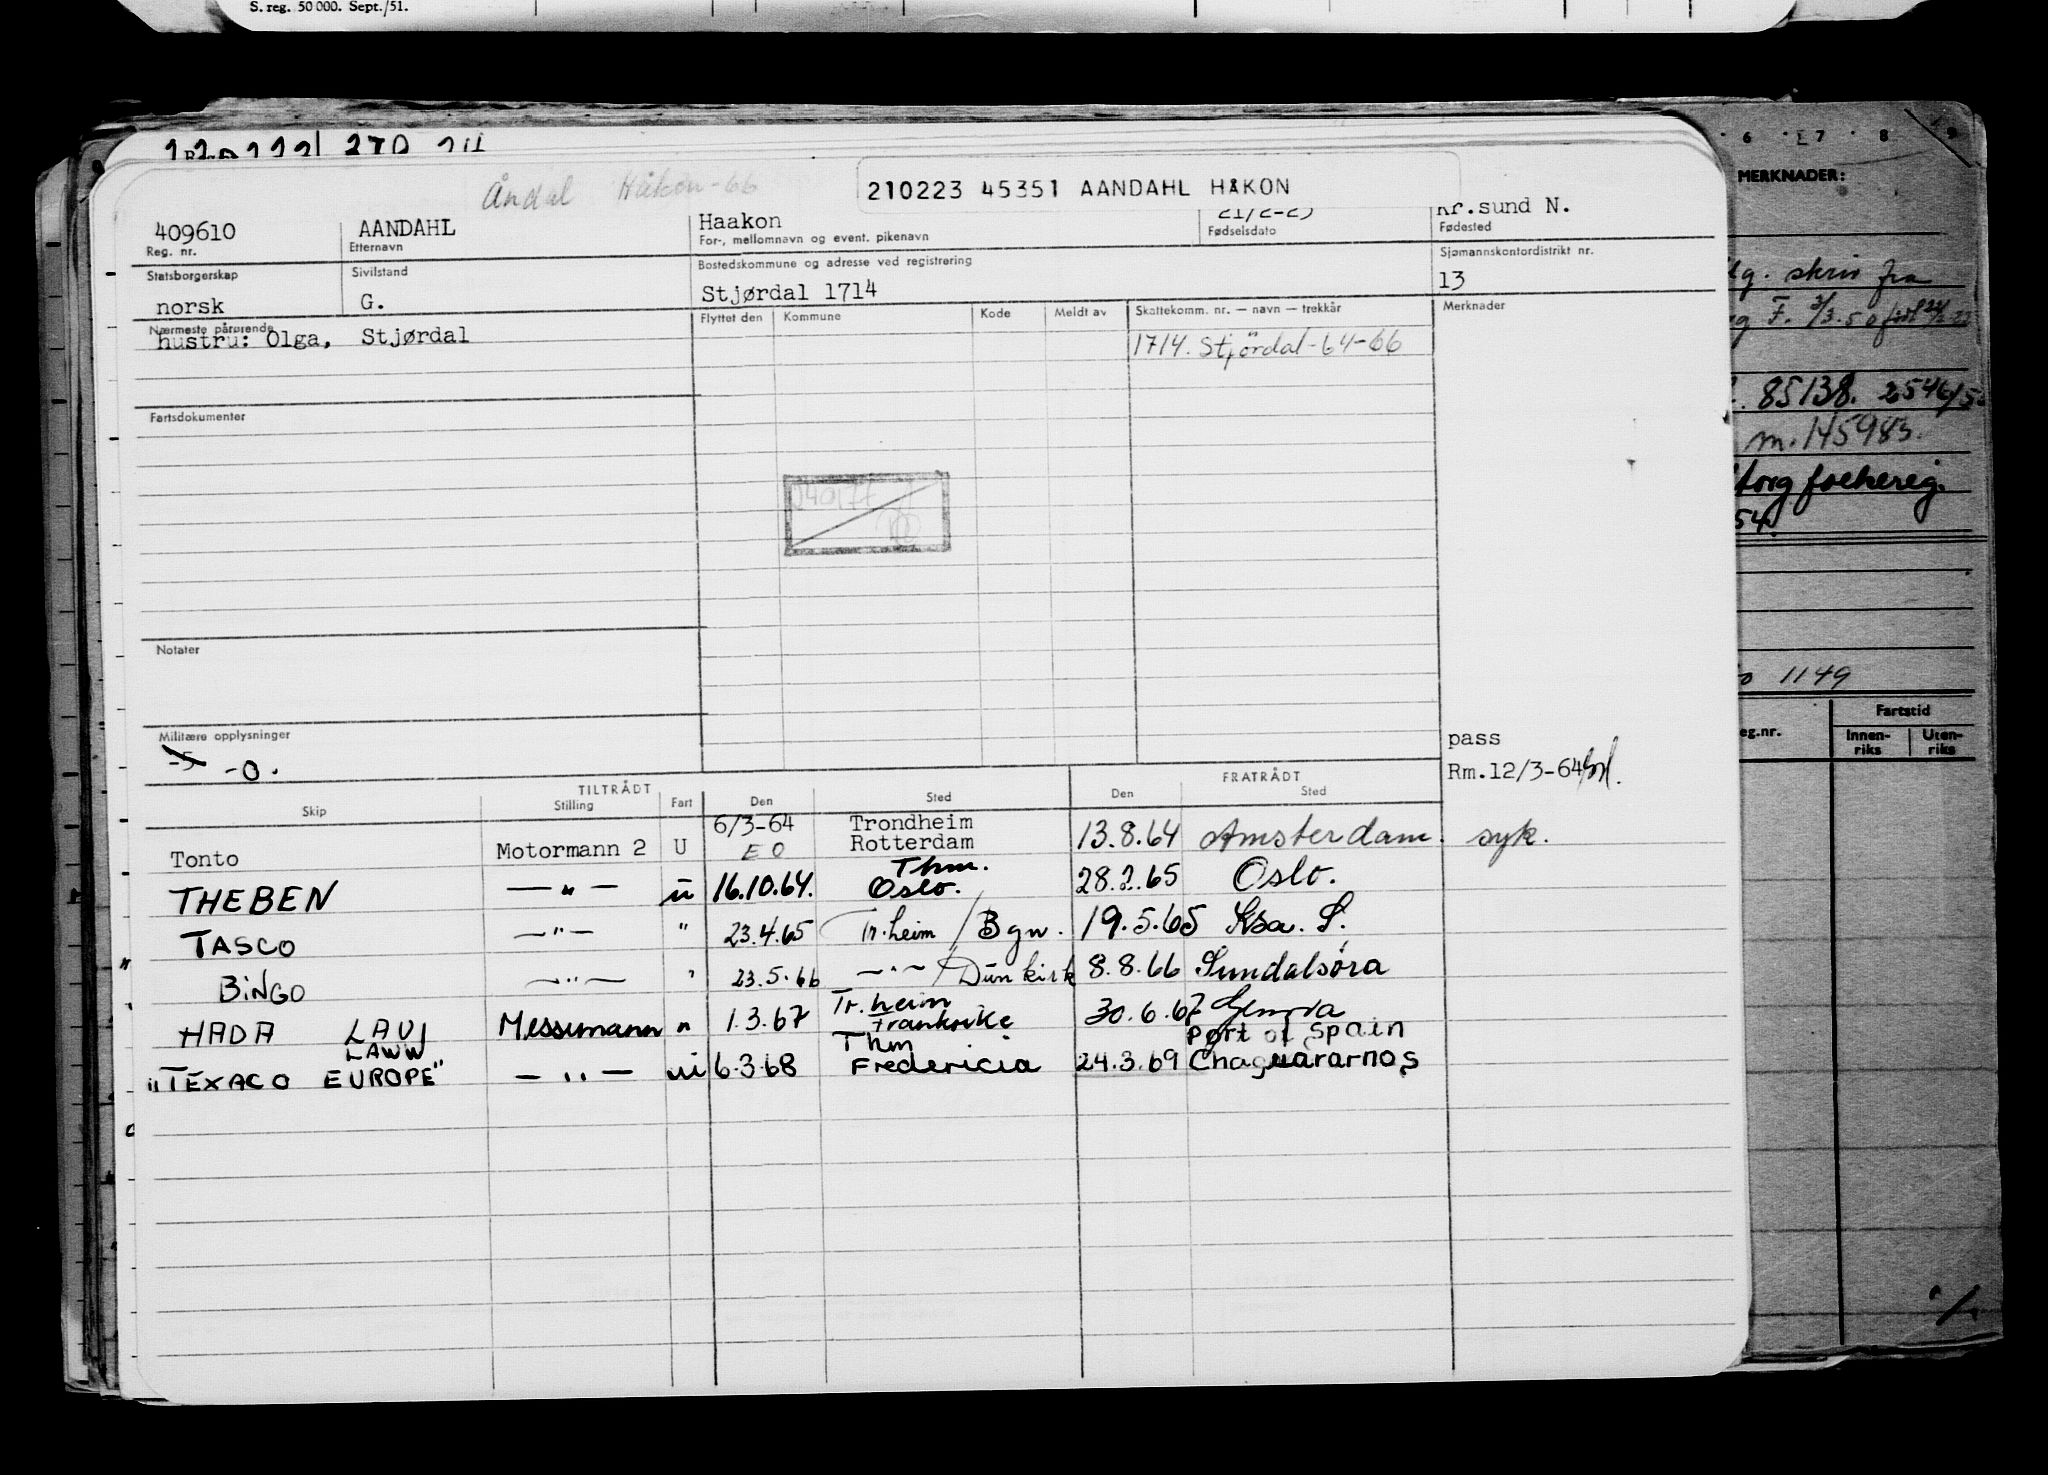 S. reg. 50 000. Sept./51.
Åndal Håkon-66
210223 45351 AANDAHL HÅKON
409610 AANDAHL Haakon 21/2-23 Kr.sund N.
Reg. nr. Etternavn For-, mellomnavn og event. pikenavn Fødselsdato Fødested
Statsborgerskap Sivilstand Bostedskommune og adresse ved registrering Sjømannskontordistrikt nr.
norsk G. Stjørdal 1714 13
Nærmeste pårørende Flyttet den Kommune Kode Meldt av Skattekomm. nr. — navn — trekkår Merknader
hustru: Olga, Stjørdal 1714. Stjördal-64-66
Fartsdokumenter
Notater
Militære opplysninger
-5 -0.
pass
Rm.12/3-64
TILTRÅDT FRATRÅDT
Skip Stilling Fart Den Sted Den Sted
Tonto Motormann 2 U 6/3-64 Trondheim 13.8.64 Amsterdam. syk.
EO Rotterdam
Thm.
THEBEN — " — u 16.10.64. Oslo. 28.2.65 Oslo.
TASCO — " — " 23.4.65 Tr.heim / Bgn. 19.5.65 Ksa. S.
" BiNGO — " — " 23.5.66 — " — / Dunkirk 8.8.66 Sundalsöra
Tr.heim
HADA LAUI Messemann " 1.3.67 Frankrike 30.6.67 Genova
LAWW Thm Port of Spain
"TEXACO EUROPE" — " — ui 6.3.68 Fredericia 24.3.69 Chaguararnas
6 7 8 9
MERKNADER:
skriv fra
85138. 2546/5
m. 145983.
54.
1149
Fartstid
eg.nr. Innen-riks Uten-riks